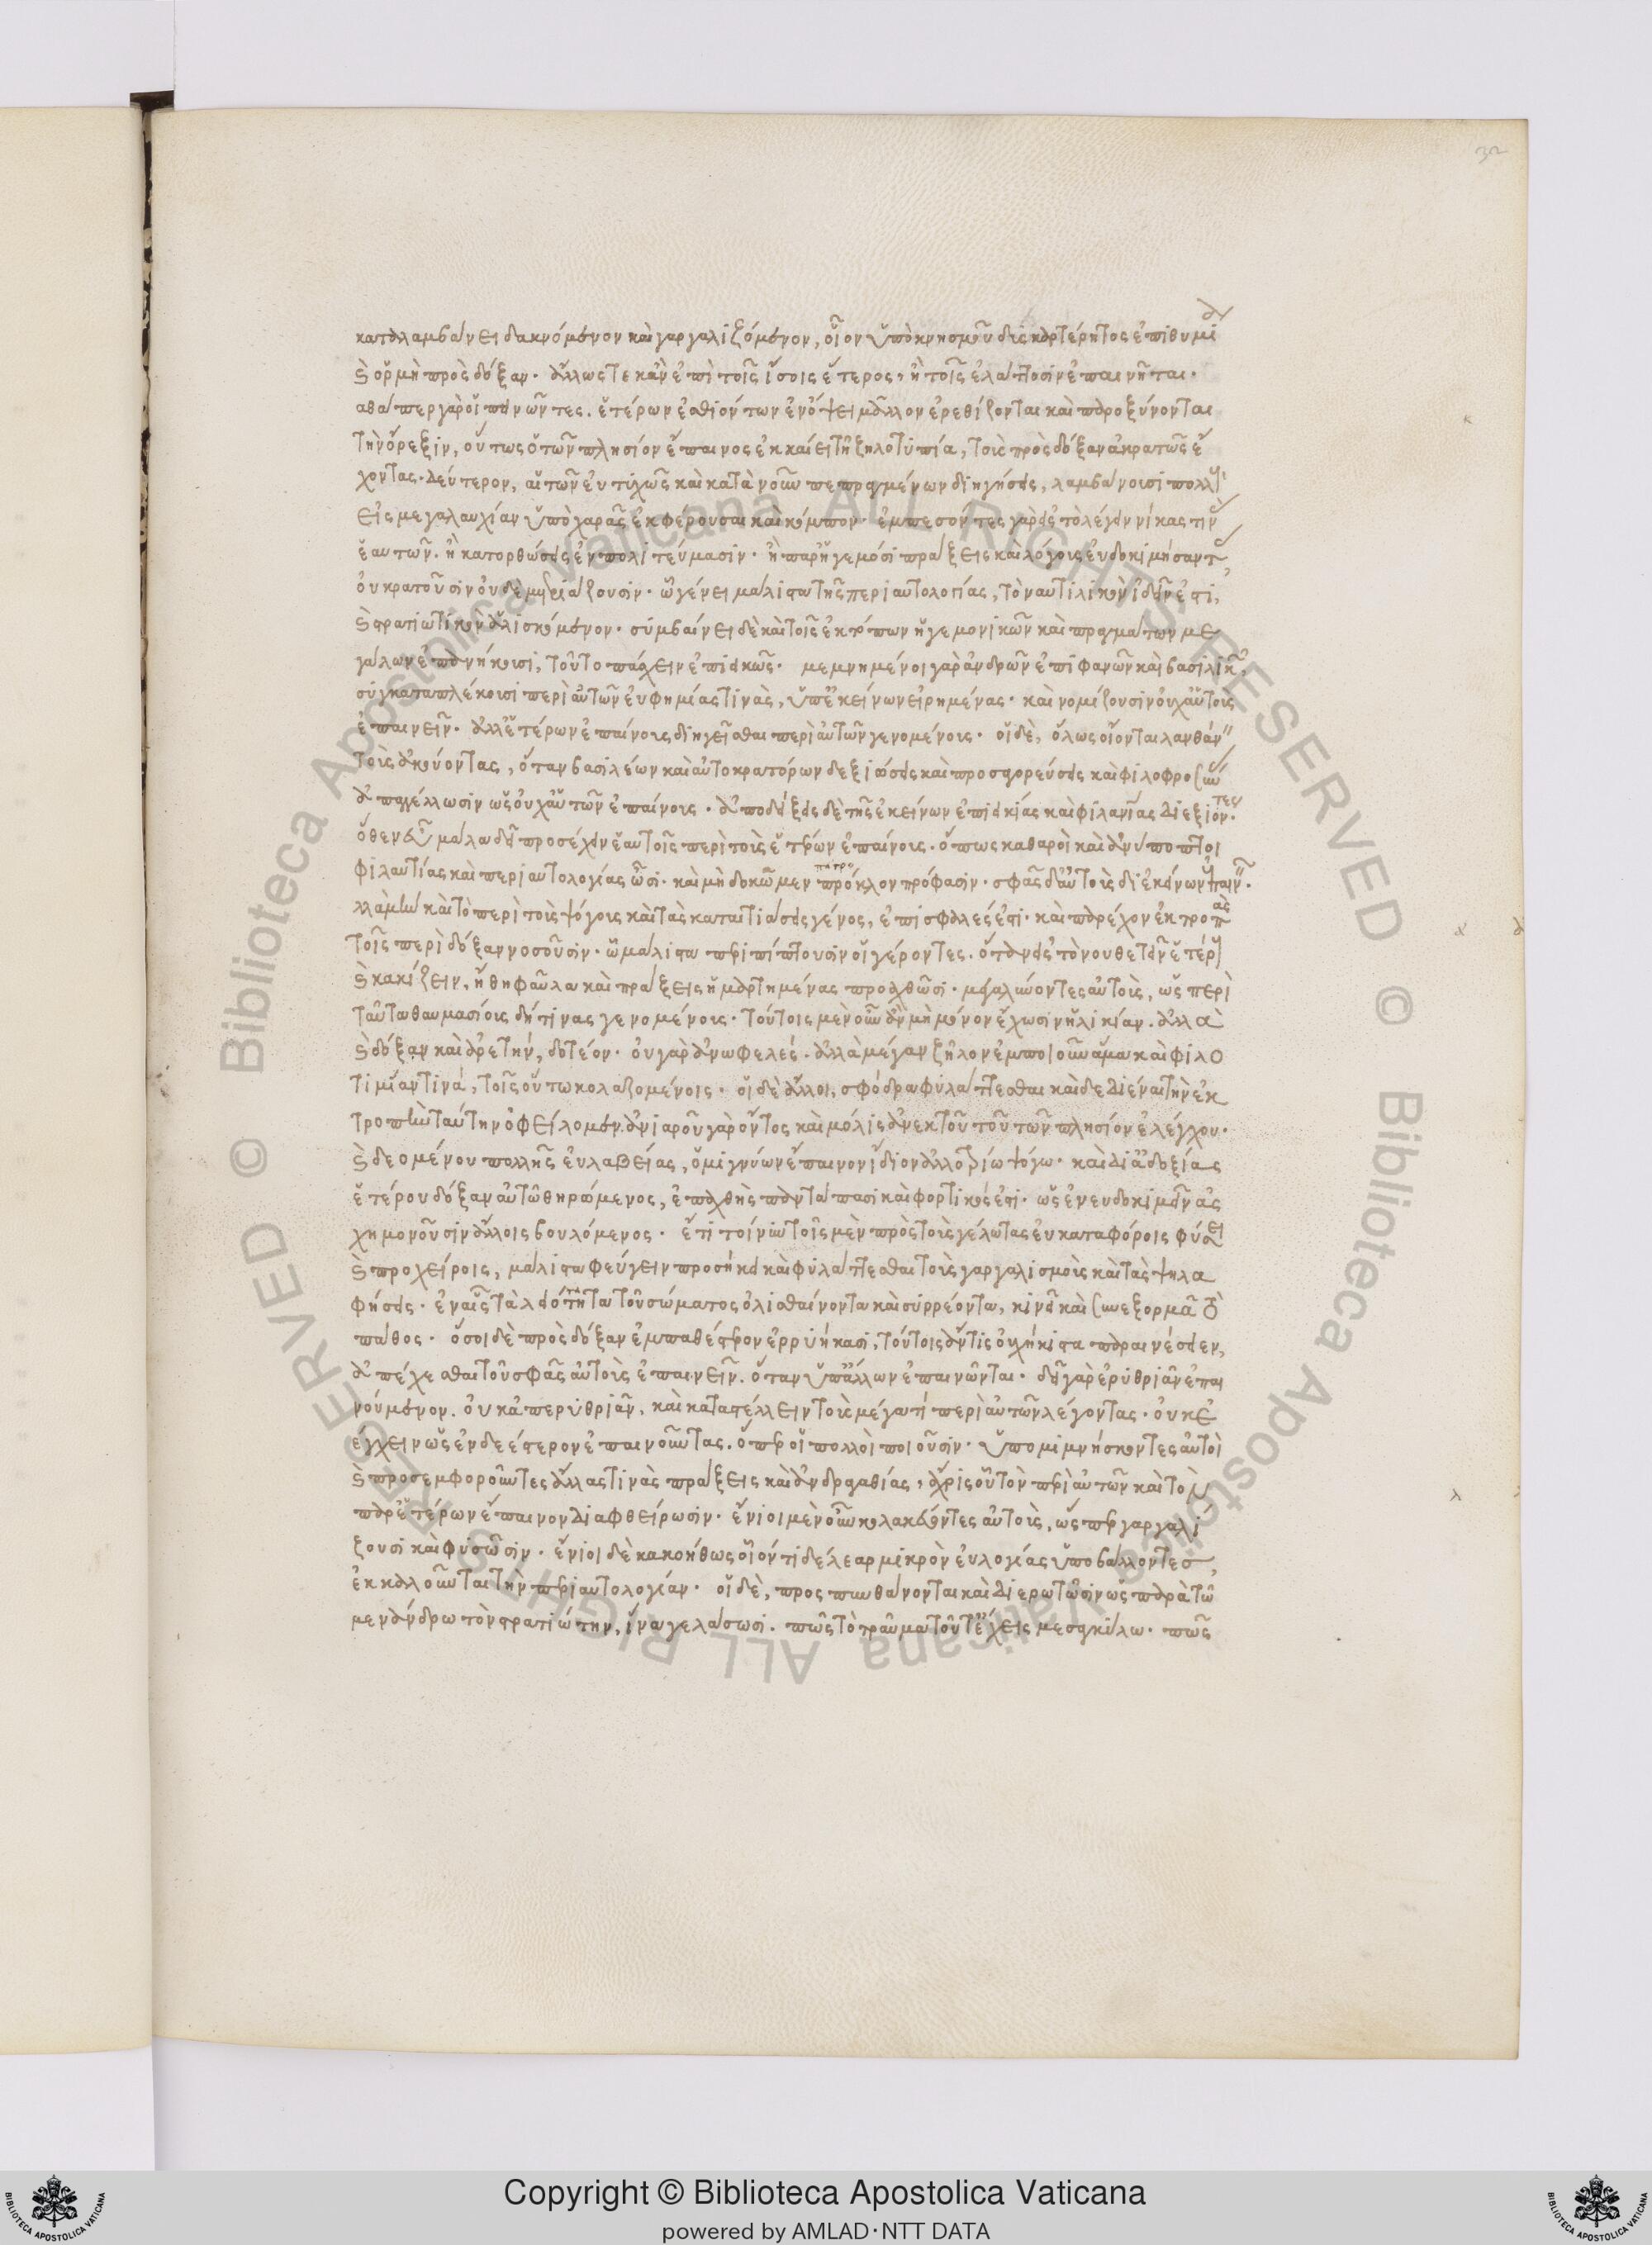 32
καταλαμβάνει δακνόμενον καὶ γαργαλιζόμενον, οἷον ὑπὸ κνησμοῦ δυσκαρτέρητος ἐπιθυμί
καὶ ὁρμὴ πρὸς δόξαν· ἄλλως τε κἂν ἐπὶ τοῖς ἴσοις ἕτερος, ἢ τοῖς ἐλάττοσιν ἐπαινῆται·
αθάπερ γὰρ οἱ πεινῶντες. ἑτέρων ἐσθιόντων ἐν ὄψει μᾶλλον ἐρεθίζονται καὶ παροξύνονται
τὴν ὄρεξιν, οὕτως ὁ τῶν πλησίον ἔπαινος ἐκκαίει τῆ ζηλοτυπία, τοὺς πρὸς δόξαν ἀκρατῶς ἔ
χοντας. δεύτερον, αἱ τῶν εὐτυχῶς καὶ κατὰ νοῦν πεπραγμένων διηγήσεις, λαμβάνουσι πολλ
εἰς μεγαλαυχίαν ὑπὸ χαρᾶς ἐκφέρουσαι καὶ κόμπον· ἐμπεσόντες γὰρ εἰς τὸ λέγειν νίκας τιν
ἑαυτῶν. ἢ κατορθώσεις ἐν πολιτεύμασιν. ἢ παρ' ἡγεμόσι πράξεις καὶ λόγους εὐδοκιμήσαντ
οὐ κρατοῦσιν οὐδὲ μετριάζουσιν. ὧ γένει μάλιστα τῆς περιαυτολογίας, τὸ ναυτιλικὸν ἰδεῖν ἐστι,
καὶ στρατιωτικὸν ἁλισκόμενον. συμβαίνει δὲ καὶ τοῖς ἐκ πότων ἡγεμονικῶν καὶ πραγμάτων με
γάλων ἐπανήκουσι, τοῦτο πάσχειν ἐπιεικῶς. μεμνημένοι γὰρ ἀνδρῶν ἐπιφανῶν καὶ βασιλικῶν,
συγκαταπλέκουσι περὶ αὑτῶν εὐφημίας τινὰς, ὑπ' ἐκείνων εἰρημένας. καὶ νομίζουσιν οὐχ αὑτοὺς
ἐπαινεῖν. ἀλλ' ἑτέρων ἐπαίνους διηγεῖσθαι περὶ αὑτῶν γενομένους. οἱ δὲ, ὅλως οἴονται λανθάν
τοὺς ἀκούοντας, ὅταν βασιλέων καὶ αὐτοκρατόρων δεξιώσεις καὶ προσαγορεύσεις καὶ φιλοφροσύν
ἀπαγγέλλωσιν ὡς οὐχ αὑτῶν ἐπαίνους. ἀποδείξεις δὲ τῆς ἐκείνων ἐπιεικίας καὶ φιλανίας διεξιόντες.
ὅθεν εὖ μάλα δεῖ προσέχειν ἑαυτοῖς περὶ τοὺς ἑτέρων ἐπαίνους. ὅπως καθαροὶ καὶ ἀνύποπτοι
φιλαυτίας καὶ περιαυτολογίας ὦσι. καὶ μὴ δοκῶμεν πάτροκλον πρόφασιν. σφᾶς δ' αὐτοὺς δι' ἐκείνων ἐπαινεῖν.
λλὰ μὴν καὶ τὸ περὶ τοὺς ψόγους καὶ τὰς καταιτιάσεις γένος, ἐπισφαλές ἐστι. καὶ παρέχον ἐκτροπὰς
τοῖς περὶ δόξαν νοσοῦσιν. ὧ μάλιστα περιπίπτουσιν οἱ γέροντες. ὅταν εἰς τὸ νουθετεῖν ἑτέρους
καὶ κακίζειν, ἤθη φαῦλα καὶ πράξεις ἡμαρτημένας προαχθῶσι. μεγαλύνοντες αὑτοὺς, ὡς περὶ
ταῦτα θαυμασίους δή τινας γενομένους. τούτοις μὲν οὖν ἂν μὴ μόνον ἔχωσιν ἡλικίαν. ἀλλὰ
καὶ δόξαν καὶ ἀρετήν, δοτέον. οὐ γὰρ ἀνωφελές. ἀλλὰ μέγαν ζῆλον ἐμποιοῦν ἅμα καὶ φιλο
τιμίαν τινά, τοῖς οὕτω κολαζομένοις. οἱ δὲ ἄλλοι, σφόδρα φυλάττεσθαι καὶ δεδιέναι τὴν ἐκ
τροπὴν ταύτην ὀφείλομεν. ἀνιαροῦ γὰρ ὄντος καὶ μόλις ἀνεκτοῦ τοῦ τῶν πλησίον ἐλέγχου.
καὶ δεομένου πολλῆς εὐλαβείας, ὁ μιγνύων ἔπαινον ἴδιον ἀλλοτρίω ψόγω. καὶ δι' ἀδοξίας
ἑτέρου δόξαν αὑτῶ θηρώμενος, ἐπαχθὴς παντάπασι καὶ φορτικός ἐστι. ὡς ἐνευδοκιμεῖν ἀσ
χημονοῦσιν ἄλλοις βουλόμενος. ἔτι τοίνυν τοῖς μὲν πρὸς τοὺς γέλωτας εὐκαταφόροις φύσει
καὶ προχείροις, μάλιστα φεύγειν προσήκει καὶ φυλάττεσθαι τοὺς γαργαλισμοὺς καὶ τὰς ψηλα
φήσεις. ἐν αἷς τὰ λειότητα τοῦ σώματος ὀλισθαίνοντα καὶ συρρέοντα, κινεῖ καὶ συνεξορμᾶ τὸ
πάθος. ὅσοι δὲ πρὸς δόξαν ἐμπαθέστερον ἐρρυήκασι, τούτοις ἄν τις οὐχ ἥκιστα παραινέσειεν,
ἀπέχεσθαι τοῦ σφᾶς αὐτοὺς ἐπαινεῖν. ὅταν ὑπ' ἄλλων ἐπαινῶνται. δεῖ γὰρ ἐρυθριᾶν ἐπαι
νούμενον. οὐκ ἀπερυθριᾶν, καὶ καταστέλλειν τοὺς μέγα τι περὶ αὑτῶν λέγοντας. οὐκ ἐ
λέγχειν ὡς ἐνδεέστερον ἐπαινοῦντας. ὅπερ οἱ πολλοὶ ποιοῦσιν. ὑπομιμνήσκοντες αὐτοὶ
καὶ προσεμφοροῦντες ἄλλας τινὰς πράξεις καὶ ἀνδραγαθίας, ἄχρις οὗ τὸν περὶ αὑτῶν καὶ τὸν
παρ' ἑτέρων ἔπαινον διαφθείρωσιν. ἔνιοι μὲν οὖν κολακεύοντες αὐτοὺς, ὥσπερ γαργαλί
ζουσι καὶ φυσῶσιν. ἔνιοι δὲ κακοήθως οἷόν τι δέλεαρ μικρὸν εὐλογίας ὑποβάλλοντες,
ἐκκαλοῦνται τὴν περιαυτολογίαν. οἱ δὲ, προσπυνθάνονται καὶ διερωτῶσιν ὡς παρὰ τῶ
μενάνδρω τὸν στρατιώτην, ἵνα γελάσωσι. πῶς τὸ τραῦμα τοῦτ' ἔχεις μεσαγκύλω. πῶς
Copyright © Biblioteca Apostolica Vaticana
powered by AMLAD·NTT DATA